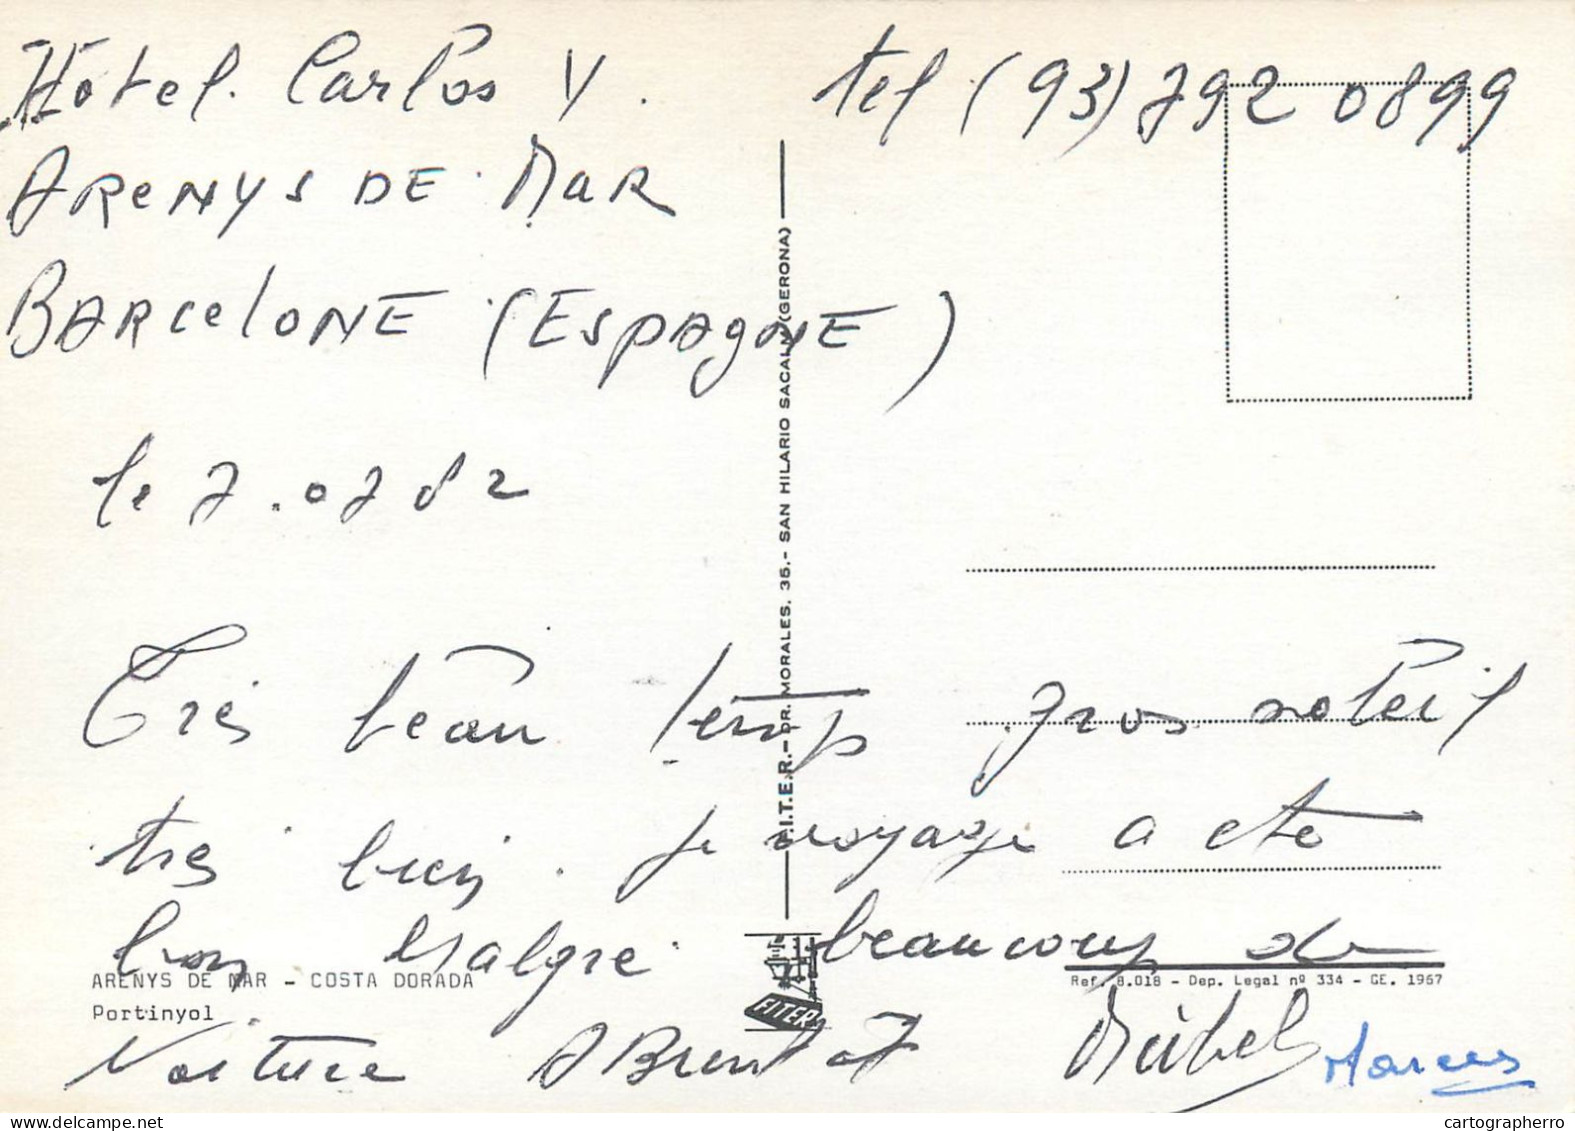 Hôtel. Carlos V. tel. (93) 792 0899
ARENYS DE MAR
BARCELONE (ESPAGNE)
le 7.07 82
Très beau temps gros soleil
très bien. je voyage a ete
bon Malgré beaucoup de
Voiture A Bientot Michel Marcus
ARENYS DE MAR - COSTA DORADA
Portinyol
F.I.T.E.R. - DR. MORALES, 35.- SAN HILARIO SACALM (GERONA)
FITER
Ref. 8.018 - Dep. Legal nº 334 - GE. 1967
delcampe.net
cartographerro